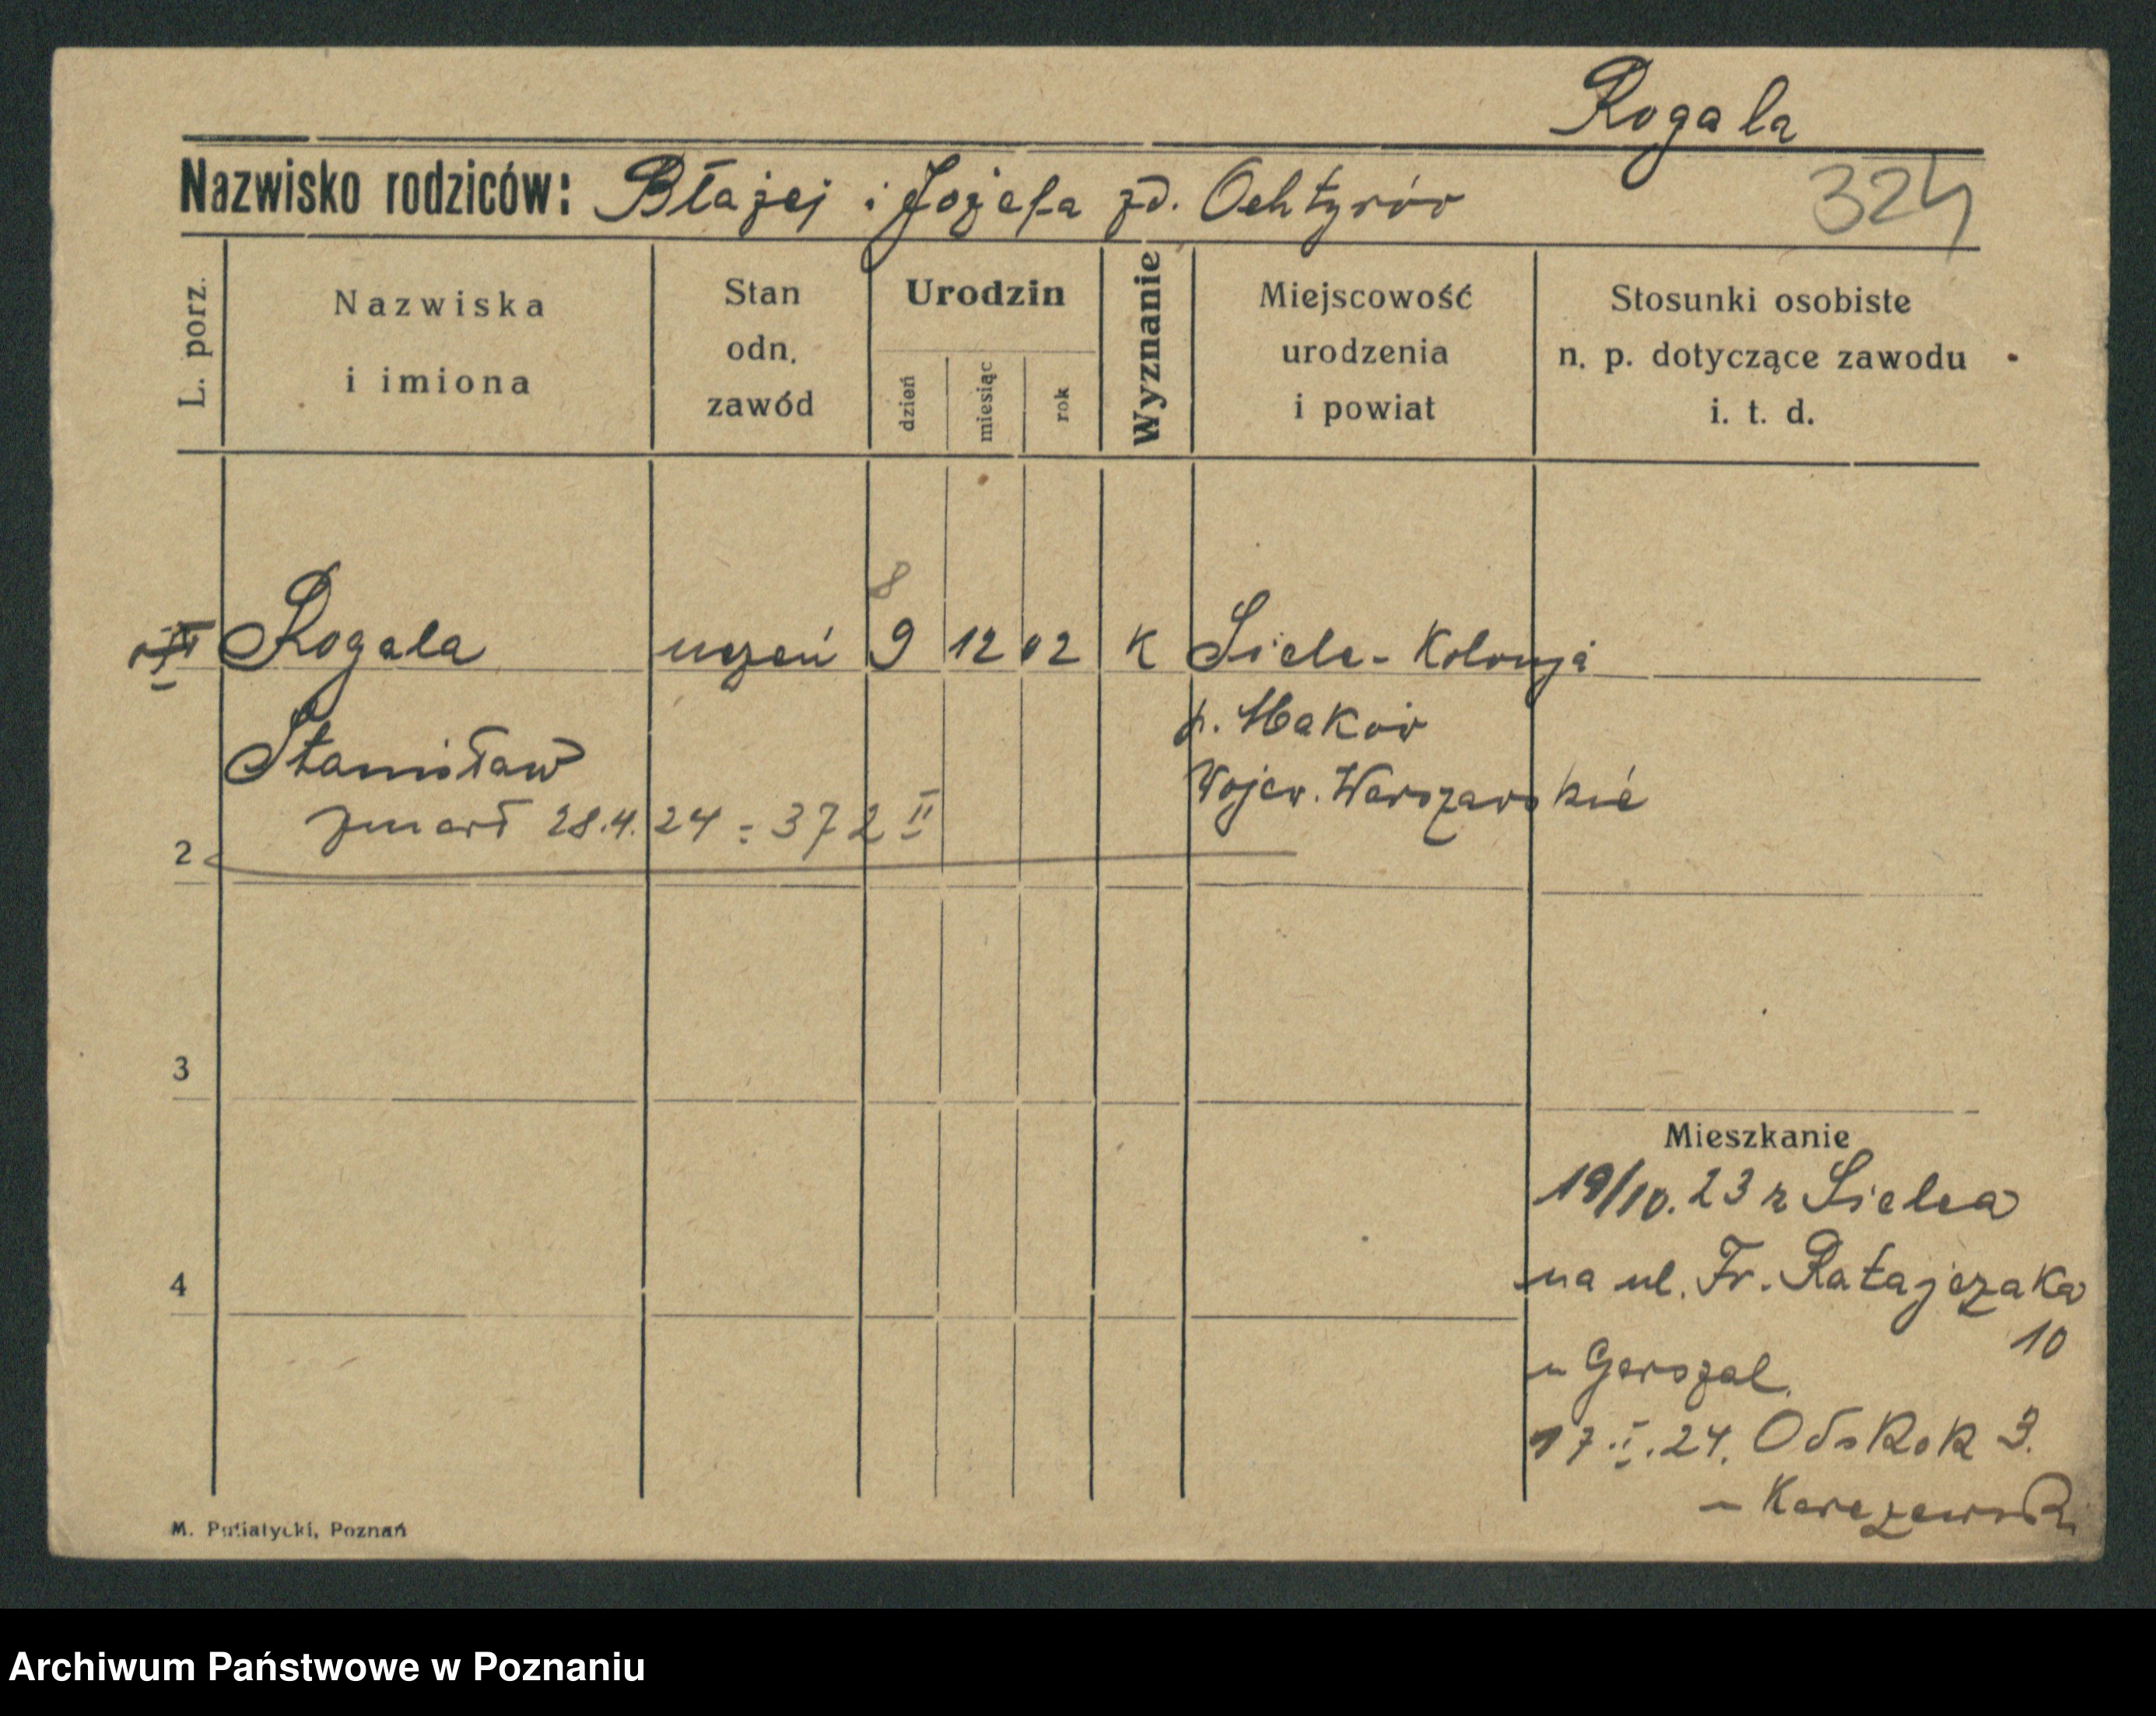 Rogala
Nazwisko rodziców: Błażej i Józefa zd. Ochtyrów
324
L. porz.
Nazwiska
i imiona
Stan
odn.
zawód
Urodzin
dzień
miesiąc
rok
Wyznanie
Miejscowość
urodzenia
i powiat
Stosunki osobiste
n. p. dotyczące zawodu
i. t. d.
8
Rogala uczeń 9 12 02 K Siele-Kolonja
p. Maków
Stanisław
Wojew. Warszawskie
zmarł 28.4.24 = 372 II
2
3
Mieszkanie
19/10.23 z Sielca
4
na ul. Fr. Ratajczaka
10
u Gerszal.
17.I.24. Odskok 3.
M. Putiatycki, Poznań
Archiwum Państwowe w Poznaniu